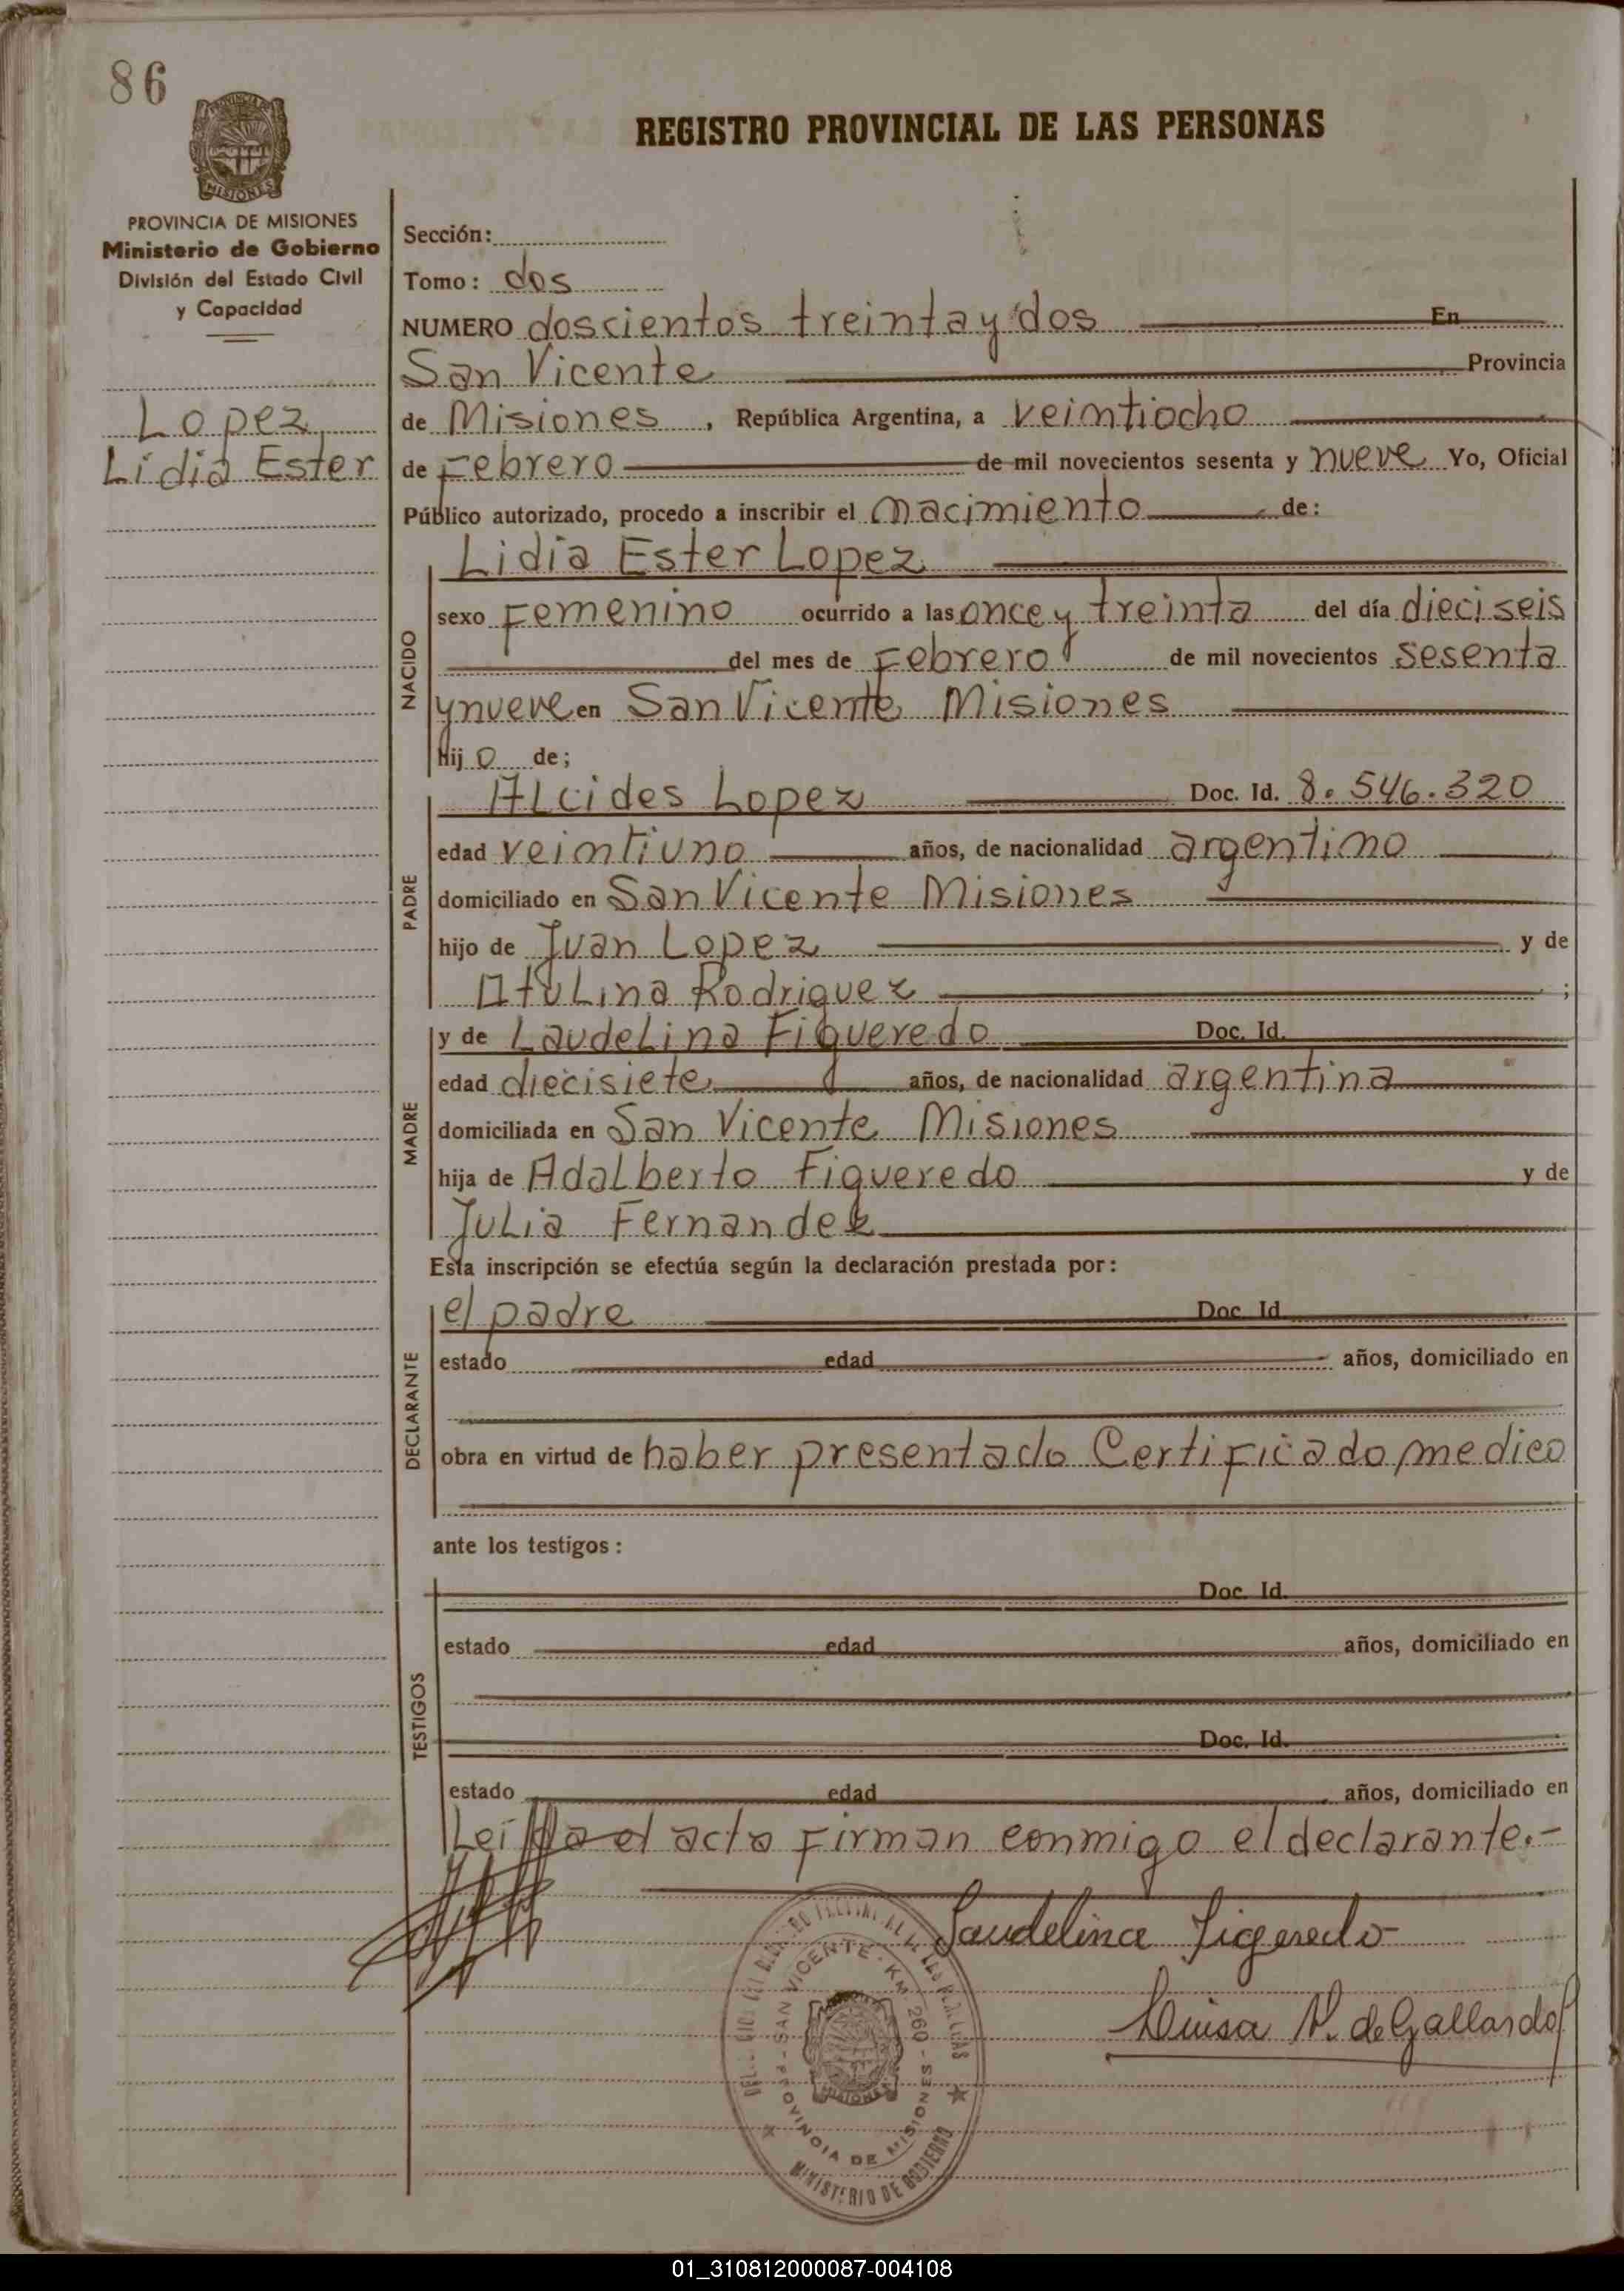 86
REGISTRO PROVINCIAL DE LAS PERSONAS
MISIONES
PROVINCIA DE MISIONES
Ministerio de Gobierno
División del Estado Civil
y Capacidad
Lopez
Lidia Ester
Sección:
Tomo: dos
NUMERO doscientos treinta y dos En
San Vicente Provincia
de Misiones, República Argentina, a veintiocho
de Febrero de mil novecientos sesenta y nueve Yo, Oficial
Público autorizado, procedo a inscribir el nacimiento de:
NACIDO
Lidia Ester Lopez
sexo Femenino ocurrido a las once y treinta del día dieciseis
del mes de Febrero de mil novecientos sesenta
y nueve en San Vicente Misiones
hijo de;
PADRE
Alcides Lopez Doc. Id. 8.546.320
edad veintiuno años, de nacionalidad argentino
domiciliado en San Vicente Misiones
hijo de Juan Lopez y de
Atulina Rodriguez ;
MADRE
y de Laudelina Figueredo Doc. Id.
edad diecisiete años, de nacionalidad argentina
domiciliada en San Vicente Misiones
hija de Adalberto Figueredo y de
Julia Fernandez
Esta inscripción se efectúa según la declaración prestada por:
DECLARANTE
el padre Doc. Id.
estado edad años, domiciliado en
obra en virtud de haber presentado Certificado medico
ante los testigos:
TESTIGOS
Doc. Id.
estado edad años, domiciliado en
Doc. Id.
estado edad años, domiciliado en
Leida el acta firman conmigo el declarante.-
Laudelina Figeredo
Luisa V. de Gallardo
SAN VICENTE - KM 260 - MISIONES
PROVINCIA DE MISIONES
MINISTERIO DE GOBIERNO
01_310812000087-004108